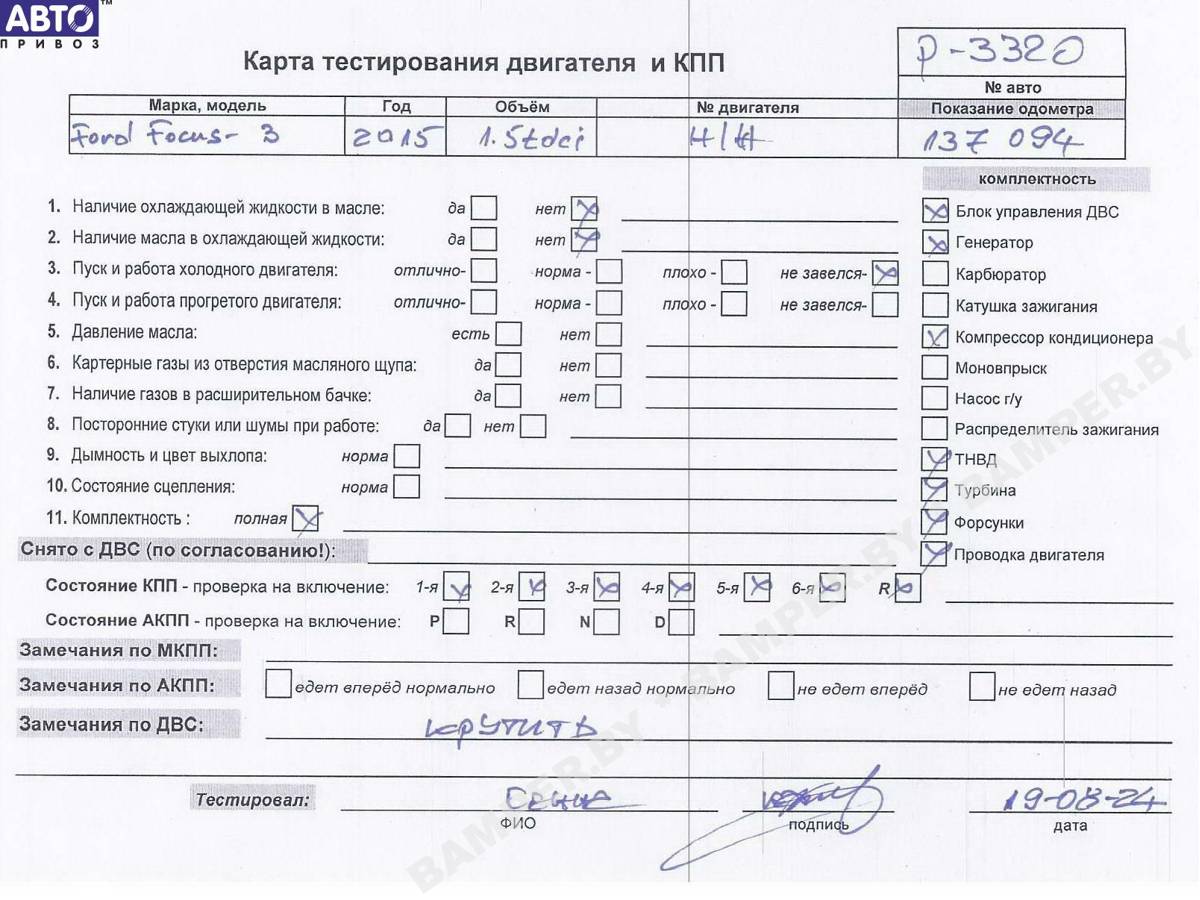 АВТО™
ПРИВОЗ
Карта тестирования двигателя и КПП
р-3320
№ авто
Марка, модель Год Объём № двигателя Показание одометра
Ford Focus- 3 2015 1.5tdci Н/Н 137 094
комплектность
1. Наличие охлаждающей жидкости в масле: да нет
2. Наличие масла в охлаждающей жидкости: да нет
3. Пуск и работа холодного двигателя: отлично- норма - плохо - не завелся-
4. Пуск и работа прогретого двигателя: отлично- норма - плохо - не завелся-
5. Давление масла: есть нет
6. Картерные газы из отверстия масляного щупа: да нет
7. Наличие газов в расширительном бачке: да нет
8. Посторонние стуки или шумы при работе: да нет
9. Дымность и цвет выхлопа: норма
10. Состояние сцепления: норма
11. Комплектность : полная
Блок управления ДВС
Генератор
Карбюратор
Катушка зажигания
Компрессор кондиционера
Моновпрыск
Насос г/у
Распределитель зажигания
ТНВД
Турбина
Форсунки
Проводка двигателя
Снято с ДВС (по согласованию!):
Состояние КПП - проверка на включение: 1-я 2-я 3-я 4-я 5-я 6-я R
Состояние АКПП - проверка на включение: P R N D
Замечания по МКПП:
Замечания по АКПП: едет вперёд нормально едет назад нормально не едет вперёд не едет назад
Замечания по ДВС: крутить
Тестировал: 19-08-24
ФИО подпись дата
BAMPER.BY - BAMPER.BY - BAMPER.BY - BAMPER.BY